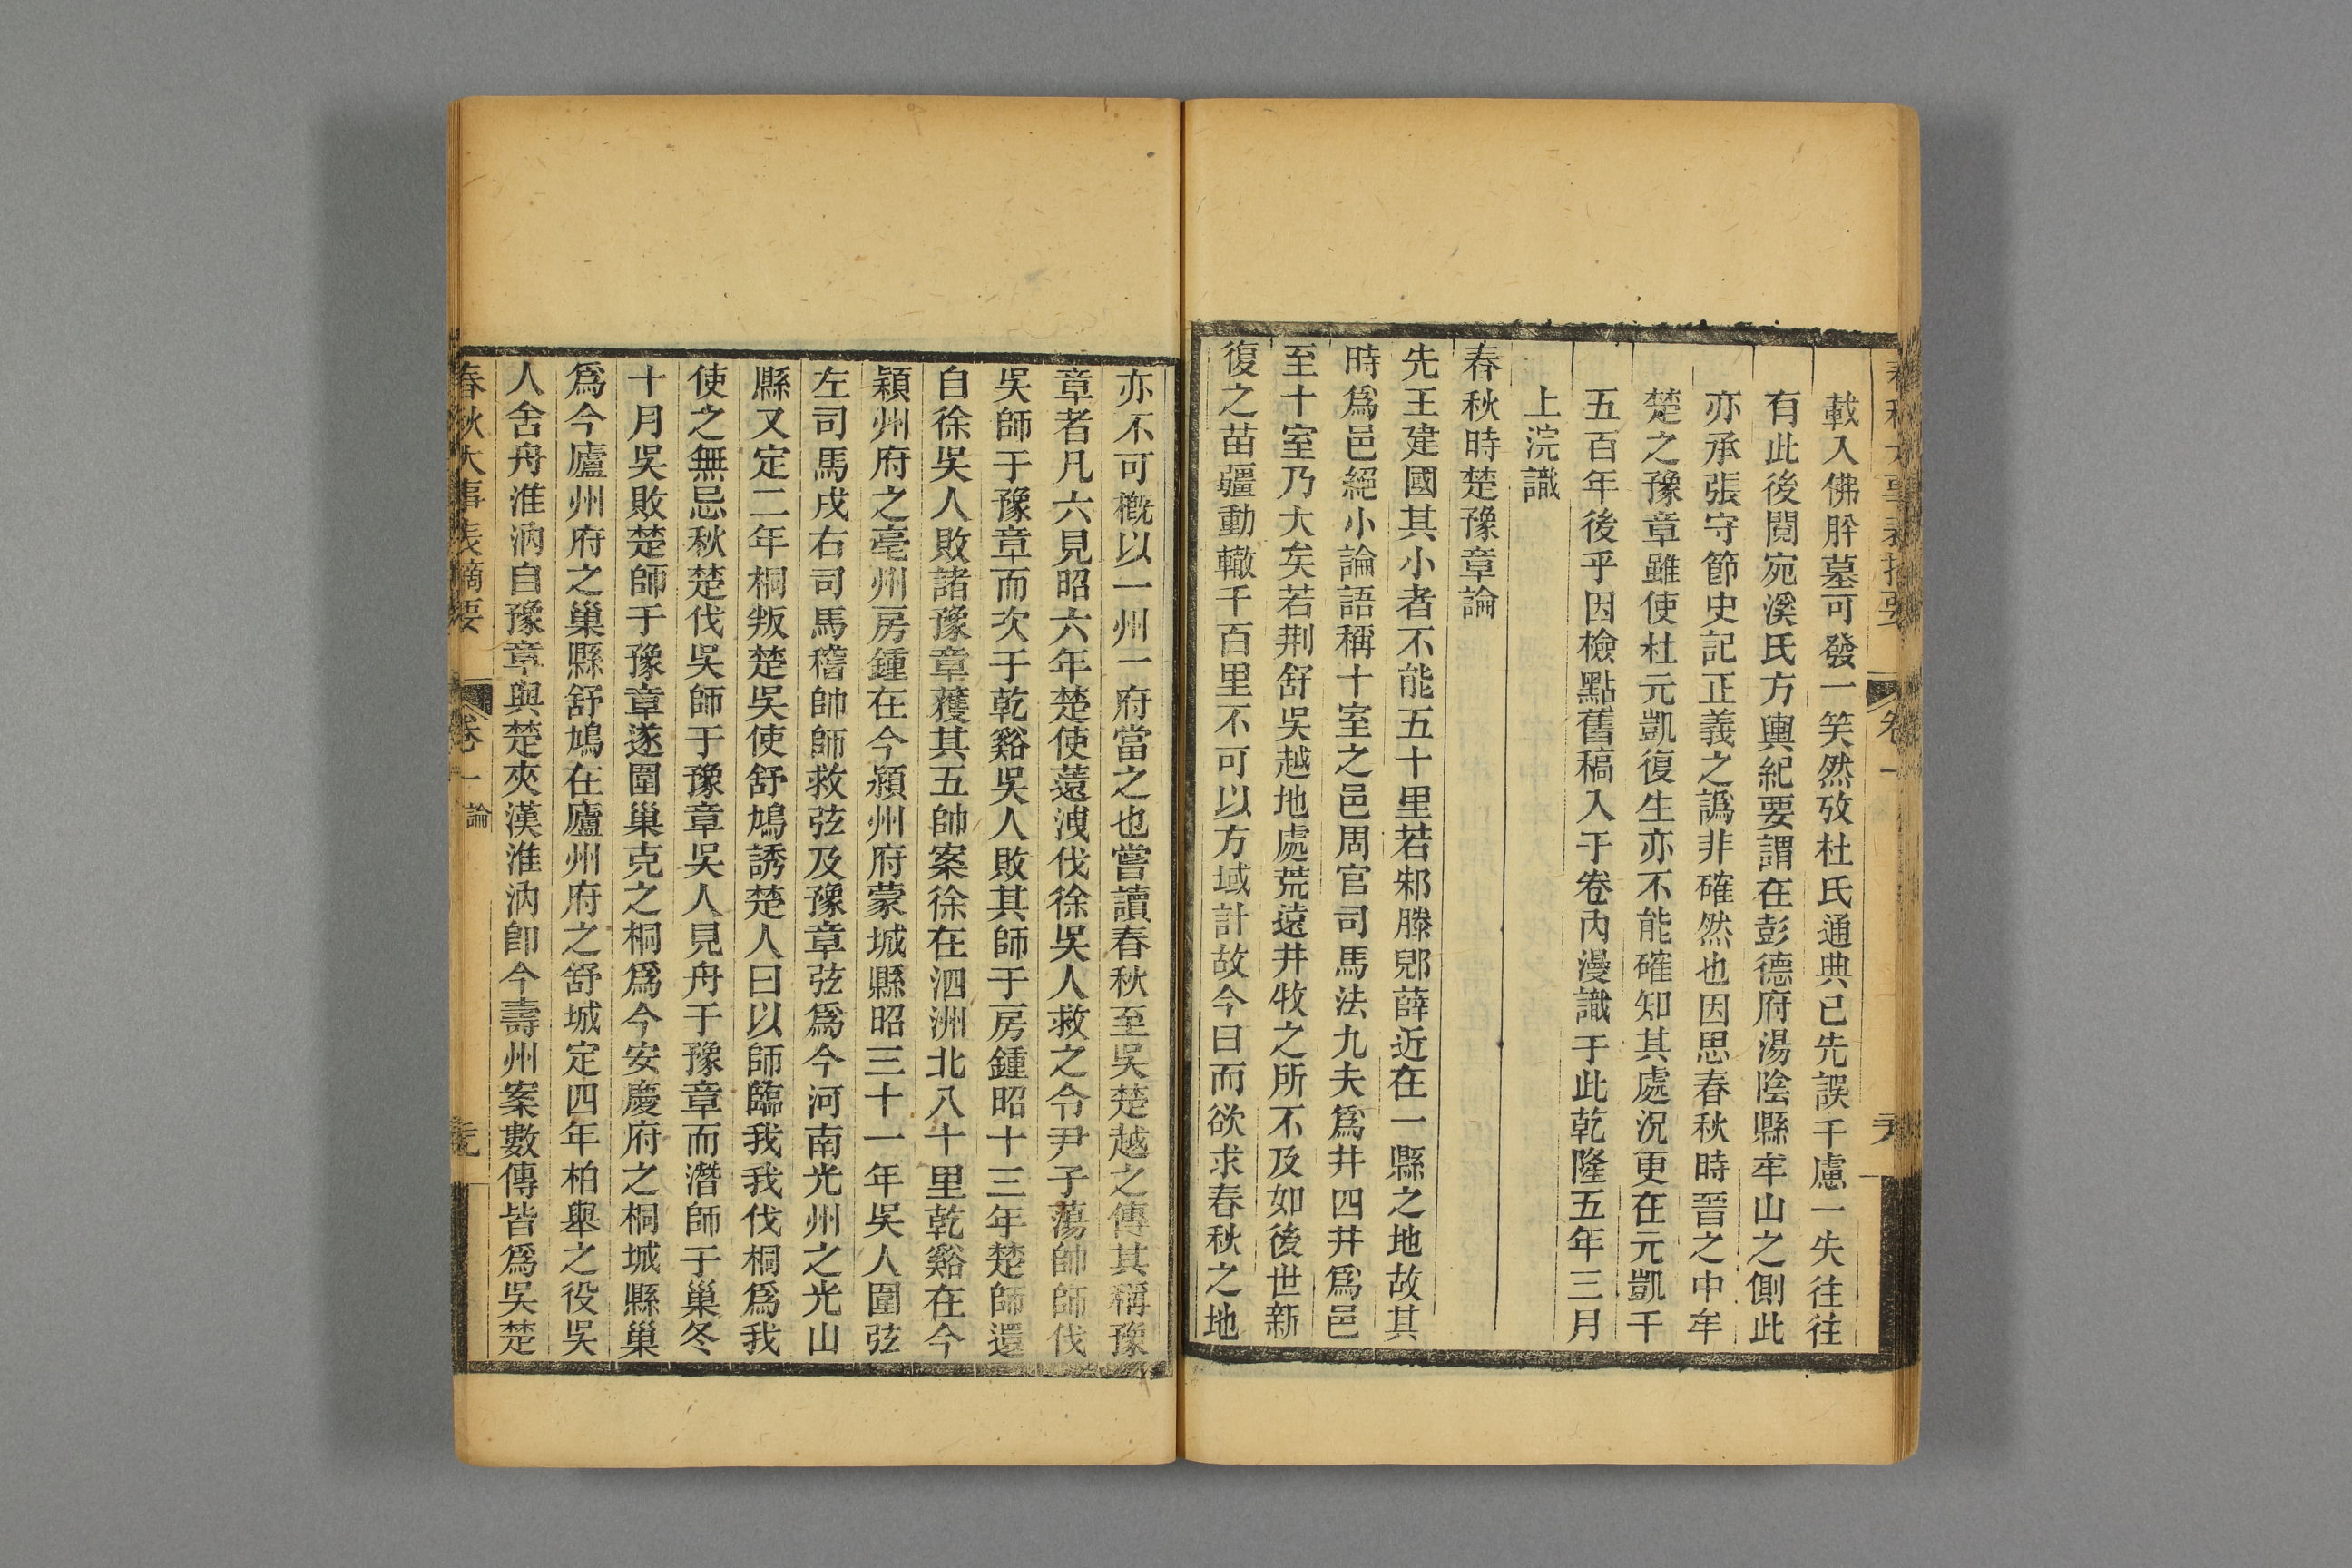 載入佛肸墓可發一笑然攷杜氏通典已先誤千慮一失往往
有此後閱宛溪氏方輿紀要謂在彭德府湯陰縣牟山之側此
亦承張守節史記正義之譌非確然也因思春秋時晉之中牟
楚之豫章雖使杜元凱復生亦不能確知其處況更在元凱千
五百年後乎因檢點舊稿入于卷內漫識于此乾隆五年三月
上浣識
春秋時楚豫章論
先王建國其小者不能五十里若邾滕郳薛近在一縣之地故其
時爲邑絕小論語稱十室之邑周官司馬法九夫爲井四井爲邑
至十室乃大矣若荆舒吳越地處荒遠井牧之所不及如後世新
復之苗疆動轍千百里不可以方域計故今日而欲求春秋之地
亦不可概以一州一府當之也嘗讀春秋至吳楚越之傳其稱豫
章者凡六見昭六年楚使薳洩伐徐吳人救之令尹子蕩帥師伐
吳師于豫章而次于乾谿吳人敗其師于房鍾昭十三年楚師還
自徐吳人敗諸豫章獲其五帥案徐在泗洲北八十里乾谿在今
潁州府之亳州房鍾在今潁州府蒙城縣昭三十一年吳人圍弦
左司馬戌右司馬稽帥師救弦及豫章弦爲今河南光州之光山
縣又定二年桐叛楚吳使舒鳩誘楚人曰以師臨我我伐桐爲我
使之無忌秋楚伐吳師于豫章吳人見舟于豫章而潛師于巢冬
十月吳敗楚師于豫章遂圍巢克之桐爲今安慶府之桐城縣巢
爲今廬州府之巢縣舒鳩在廬州府之舒城定四年柏舉之役吳
人舍舟淮汭自豫章與楚夾漢淮汭卽今壽州案數傳皆爲吳楚
春秋大事表摘要 卷一 論